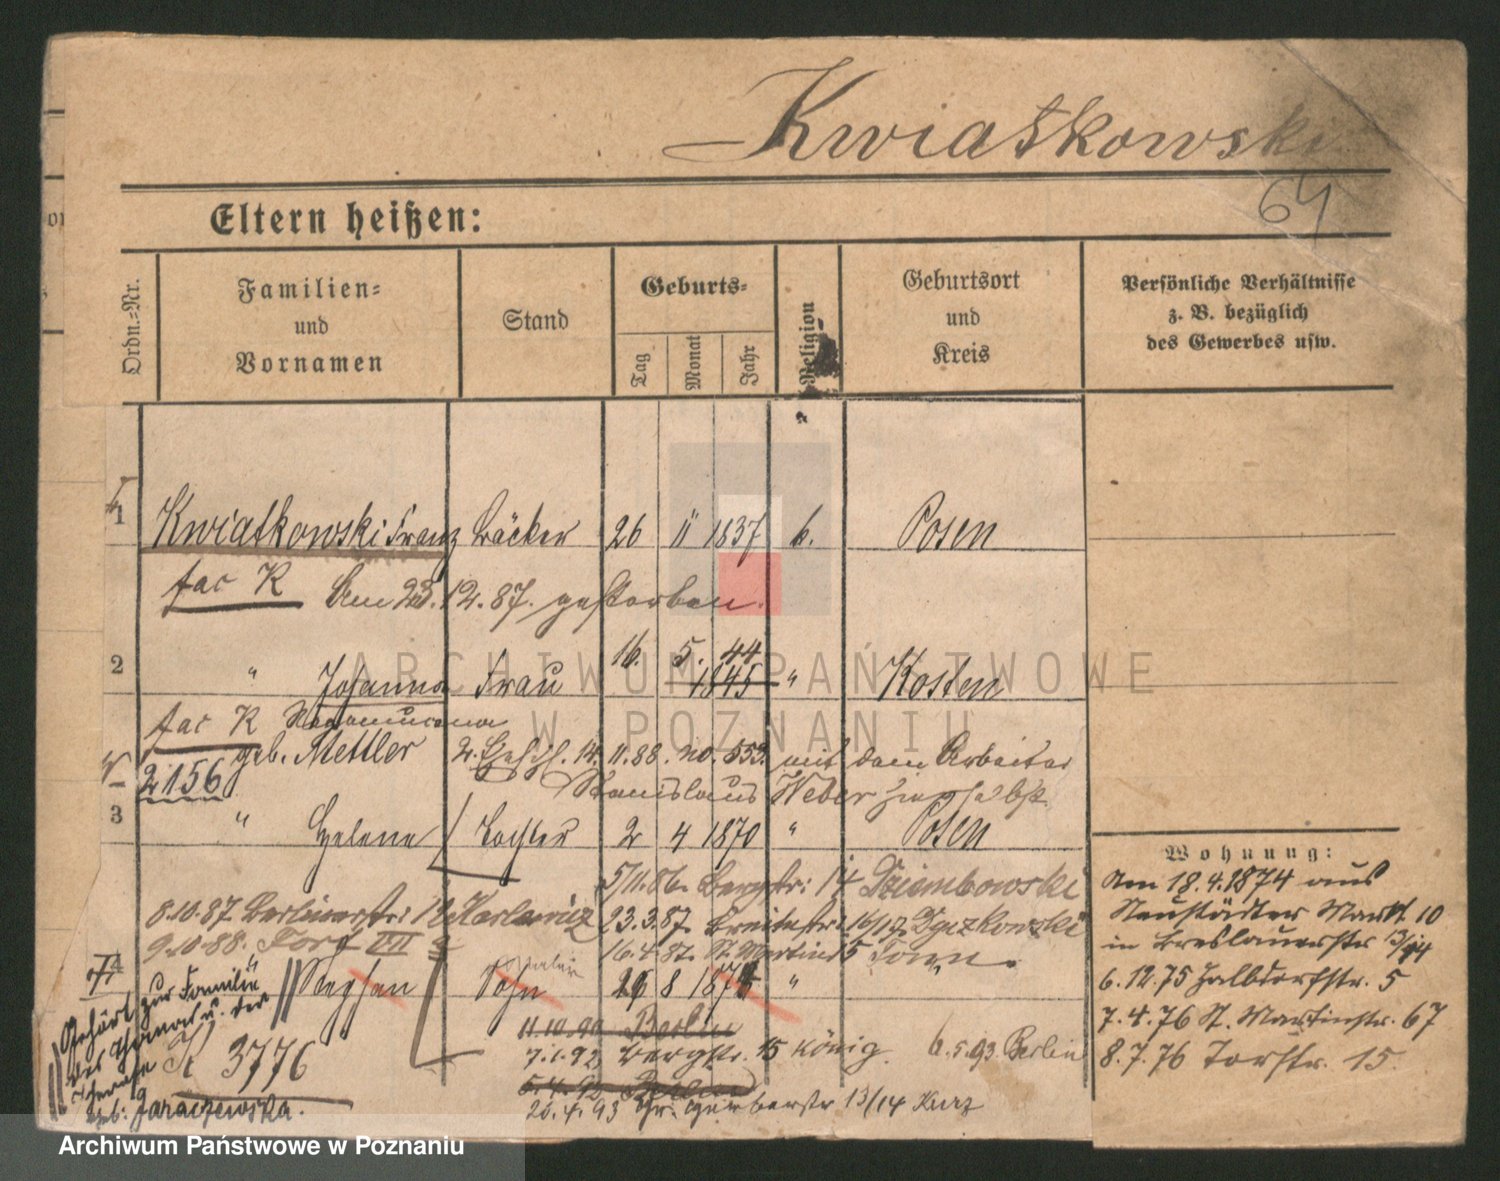 Kwiatkowski
64
Eltern heißen:
Ordn.-Nr.
Familien- und Vornamen
Stand
Geburts-
Tag
Monat
Jahr
Religion
Geburtsort und Kreis
Persönliche Verhältnisse
z. B. bezüglich
des Gewerbes usw.
1 Kwiatkowski Franz Bäcker 26 11 1837 k. Posen
fac K Am 23.12.87. gestorben.
2 " Johanna Frau 16. 5. 44 1845 " Kosten
fac K
geb. Mettler 2. 14. 11. 88. no. 553. mit dem Arbeiter
2156 Stanislaus Weber hierselbst
3 " Helene Tochter 2 4 1870 " Posen
5/11.86. Bergstr: 14 Dziembowski
8.10.87. Berlinerstr: Karlewicz 23.3.87. Breitestr: 16/17
9.10.88. Fort VII a 16.4.87. St. Martin 5
4 " Stephan Sohn 26 8 1874 "
11.10.90 Berlin
7.1.92 Bergstr. 15 König 6.5.93 Berlin
5.4.92 Berlin
20.4.93 Gr. Gerberstr 13/14
Gehört zur Familie
des Thomas u. der
Therese
geb: Jaraczewska.
K 3776
Wohnung:
Am 18.4.1874 aus
Neustädter Markt 10
in Breslauerstr 13/14
6.12.75 Halbdorfstr. 5
7.4.76 St. Martinstr. 67
8.7.76 Torstr. 15.
ARCHIWUM PAŃSTWOWE
W POZNANIU
Archiwum Państwowe w Poznaniu